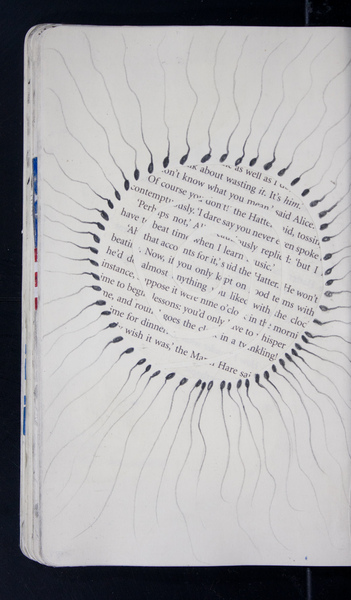 about wasting it. It's him.'
don't know what you mean,' said Alice.
Of course you don't!' the Hatter said, tossing
contemptuously. 'I dare say you never even spoke
'Perhaps not,' cautiously replied: 'but I
have to beat time when I learn music.'
'Ah! that accounts for it,' said the Hatter. 'He won't
beating. Now, if you only kept on good terms with
he'd do almost anything you liked with the clock
instance, suppose it were nine o'clock in the morning
time to begin lessons: you'd only have to whisper
time, and round goes the clock in a twinkling!
time for dinner
wish it was,' the March Hare said